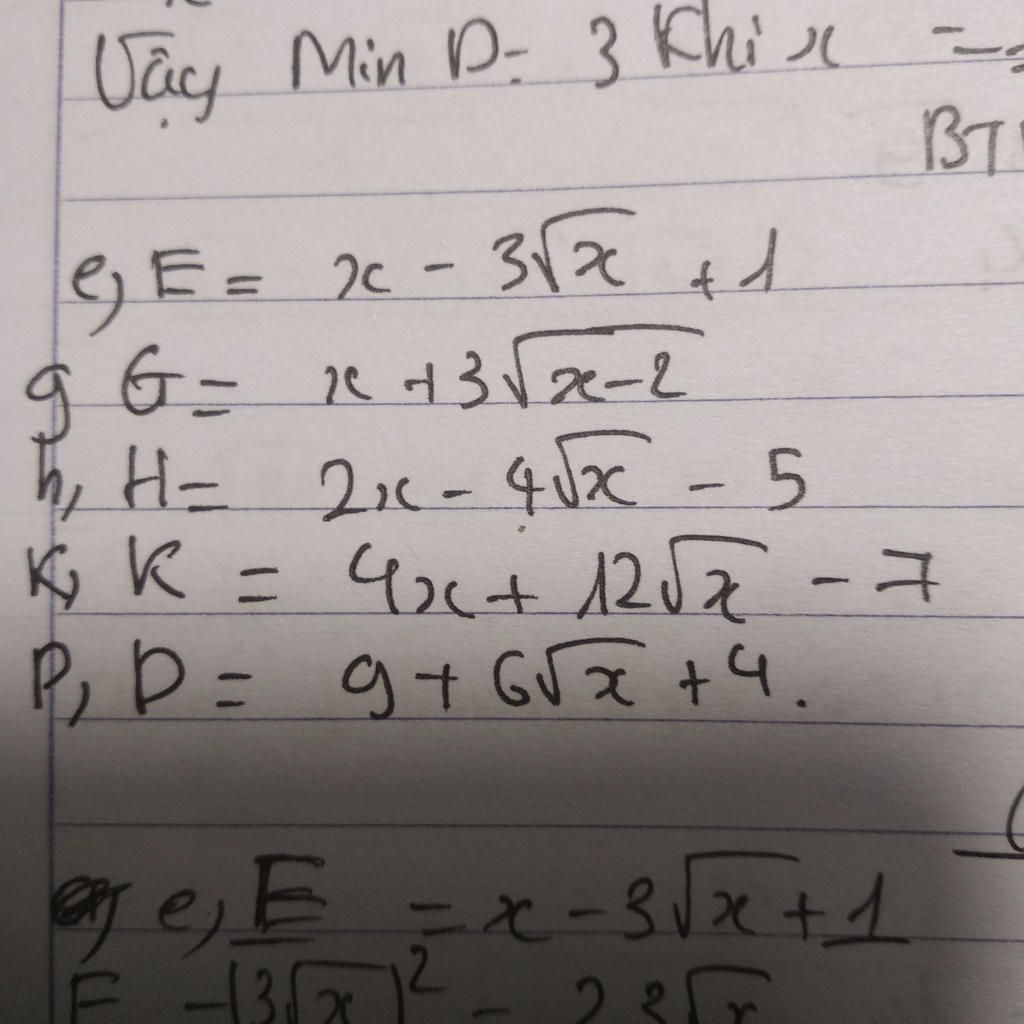 Vậy Min D = 3 Khi x =
e, E = x - 3√x + 1
g G = x + 3√(x-2)
h, H = 2x - 4√x - 5
K, K = 4x + 12√x - 7
P, D = 9 + 6√x + 4.
e, E = x - 3√x + 1